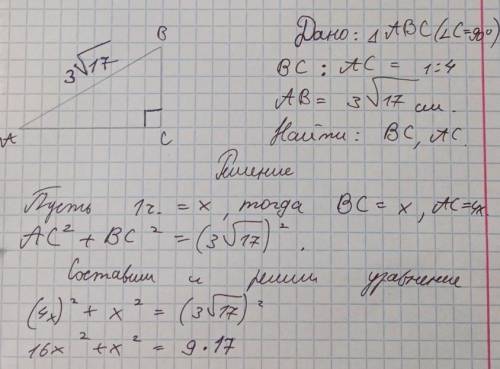 B
3√17
A
C
Дано: △ ABC (∠C=90°)
BC : AC = 1:4
AB = 3√17 см.
Найти: BC, AC.
Решение
Пусть 1ч. = x, тогда BC = x, AC=4x.
AC² + BC² = (3√17)².
Составим и решим уравнение
(4x)² + x² = (3√17)²
16x² + x² = 9·17